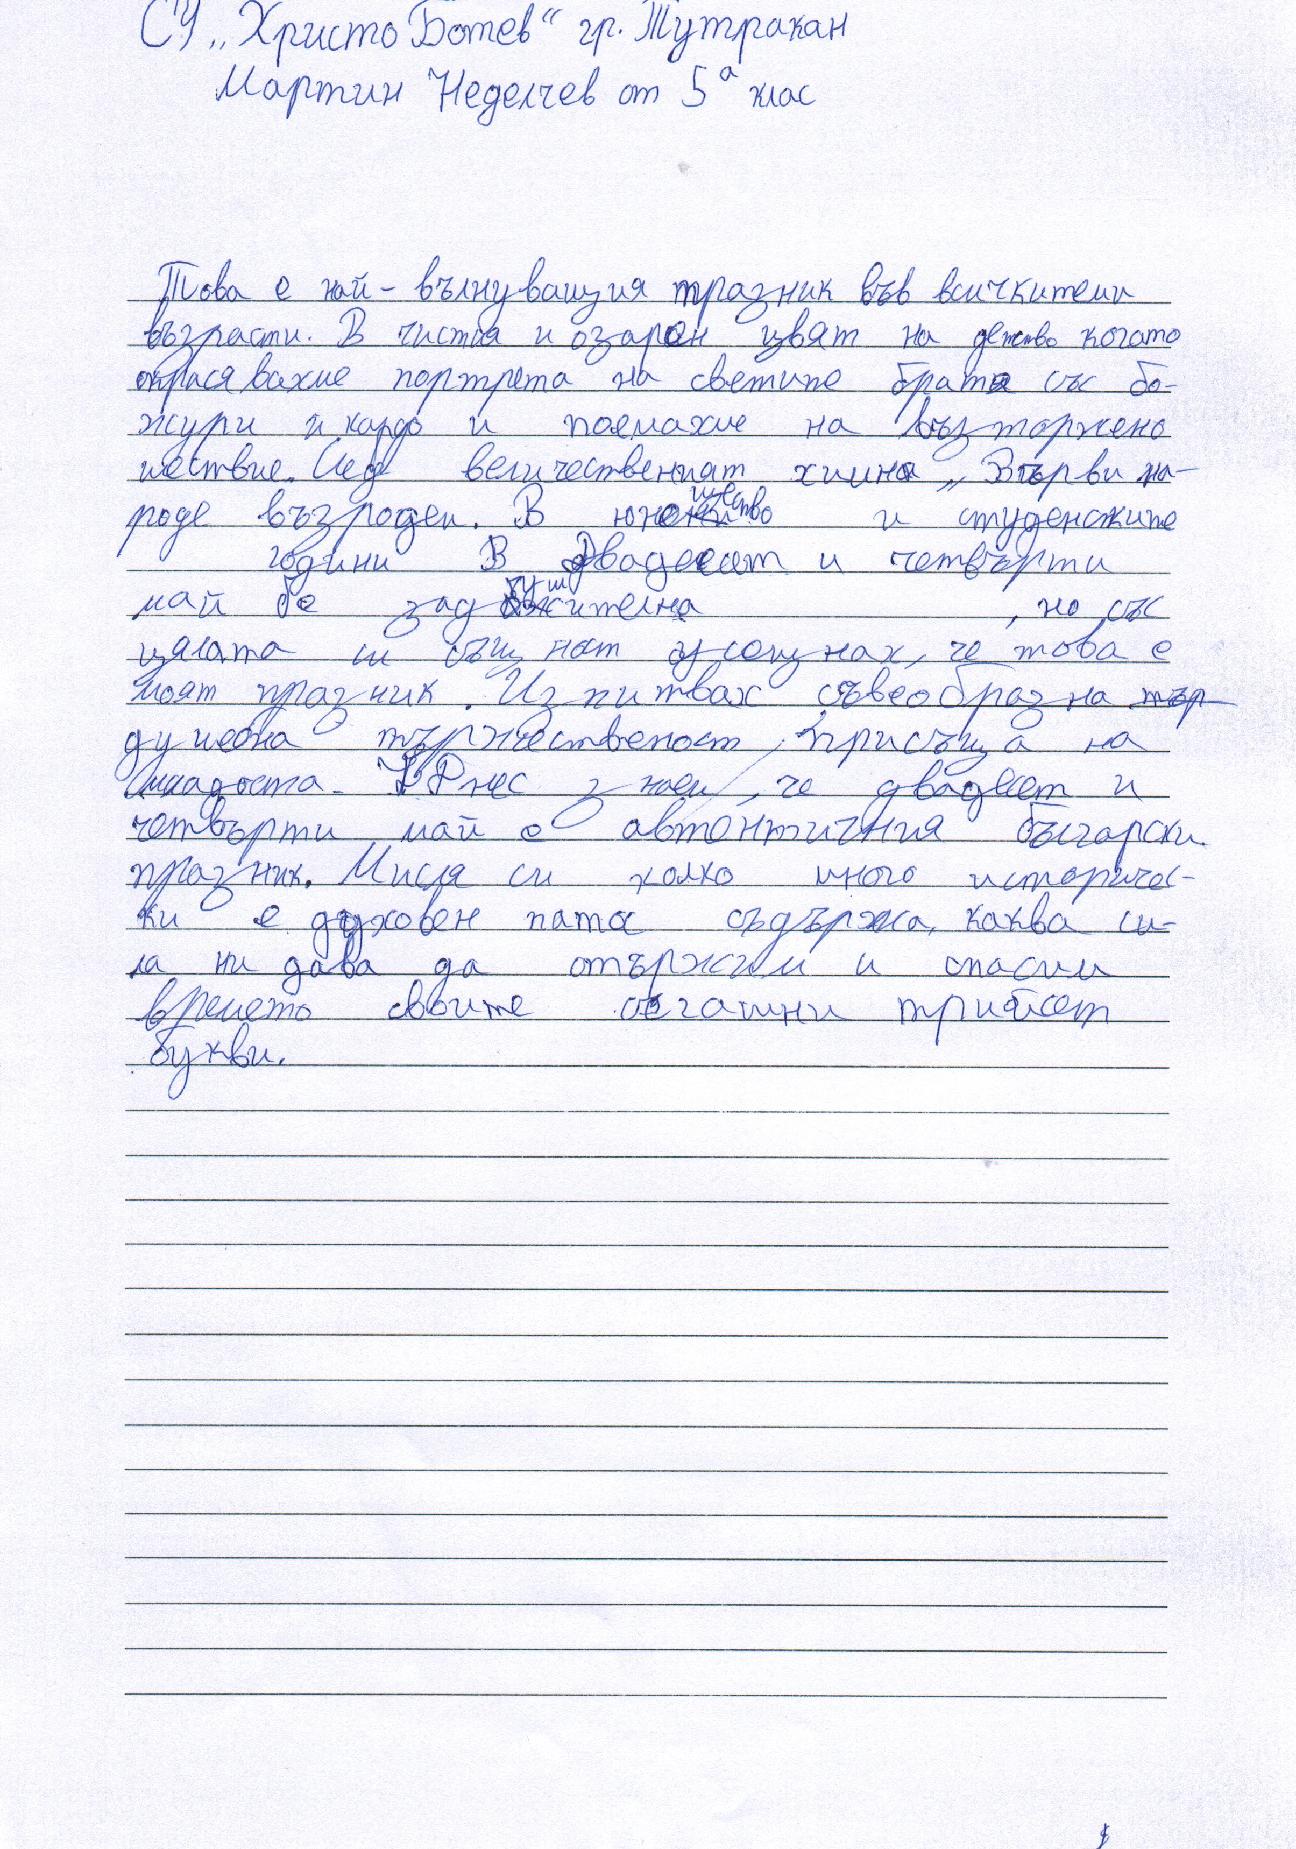 СУ „Христо Ботев“ гр. Тутракан
Мартин Неделчев от 5ª клас
Това е най-вълнуващия празник във всичкитеми
възрасти. В чистия и озарен цвят на детство когато
окрасявахме портрета на светите братя със бо-
жури и и поемахме на възторжено
шествие. След величественият химна „Върви на-
роде възродени. В юношество и студенските
години В двадесет и четвърти
май бе , но със
цялата си същност усещнах, че това е
моят празник. Изпитвах съвеобразна тър
душевна тържественост, присъща на
младоста. Днес знаем, че двадесет и
четвърти май е автентичния български.
празник. Мисля си колко много историчес-
ки е духовен патос съдържа, каква си-
ла ни дава да отържим и спасим
времето своите сегашни трийсет
букви.